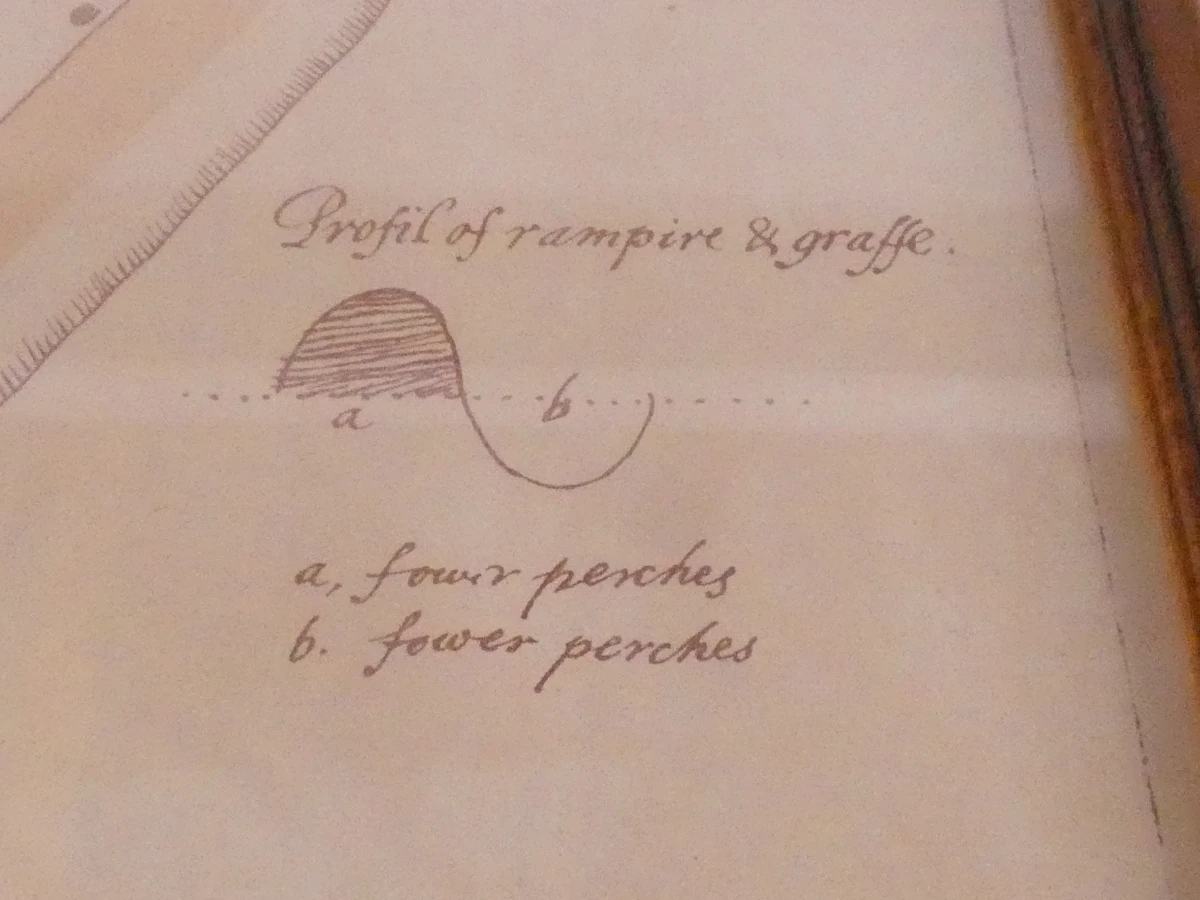 Profil of rampire & graffe.
a
b
a, fower perches
b. fower perches